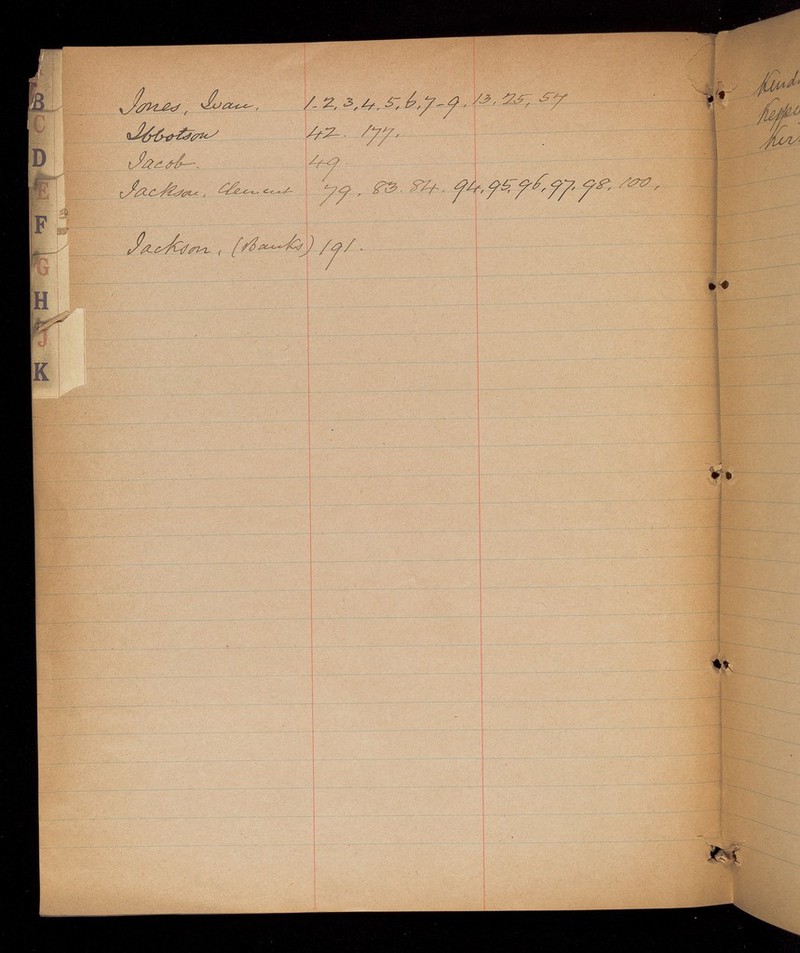 B
C
D
E
F
G
H
J
K
Jones, Ivan. 1-2, 3, 4, 5, 6, 7-9. 13, 25, 57
Ibbotson 42. 177.
Jacob. 49
Jackson, Clement 79. 83. 84. 94, 95, 96, 97, 98, 100.
Jackson, (Banks) 191.